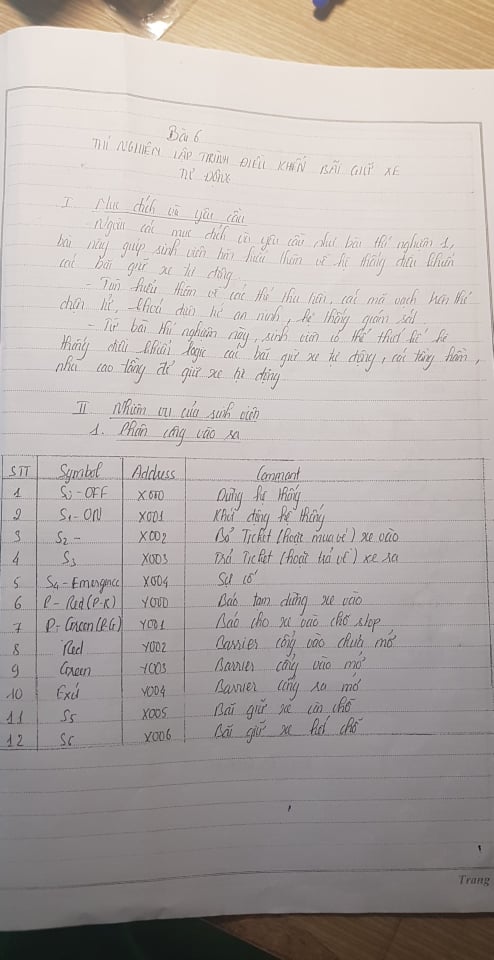 Bài 6
THÍ NGHIỆM LẬP TRÌNH ĐIỀU KHIỂN BÃI GIỮ XE
TỰ ĐỘNG
I Mục đích và yêu cầu
Ngoài các mục đích và yêu cầu như bài thí nghiệm 1,
bài này giúp sinh viên tìm hiểu thêm về hệ thống điều khiển
các bãi giữ xe tự động
- Tìm hiểu thêm về các thẻ thu tiền, các mã vạch trên thẻ
chìa hệ an ninh, hệ thống giám sát.
- Từ bài thí nghiệm này, sinh viên có thể thiết kế hệ
thống điều khiển logic các bãi giữ xe tự động, các tầng hầm,
nhà cao tầng để giữ xe tự động
II Nhiệm vụ của sinh viên
1. Phân công vào ra
STT Symbol Address Comment
1 S0-OFF X000 Dừng hệ thống
2 S1-ON X001 Khởi động hệ thống
3 S2- X002 Bỏ Ticket (hoặc mua vé) xe vào
4 S3 X003 Trả Ticket (hoặc trả vé) xe ra
5 S4-Emergence X004 Sự cố
6 P-Red(P-R) Y000 Báo tạm dừng xe vào
7 P-Green(P.G) Y001 Báo cho xe vào chỗ stop
8 Red Y002 Barrier cổng vào chưa mở
9 Green Y003 Barrier cổng vào mở
10 Exit Y004 Barrier cổng ra mở
11 S5 X005 Bãi giữ xe còn chỗ
12 S6 X006 Bãi giữ xe hết chỗ
Trang